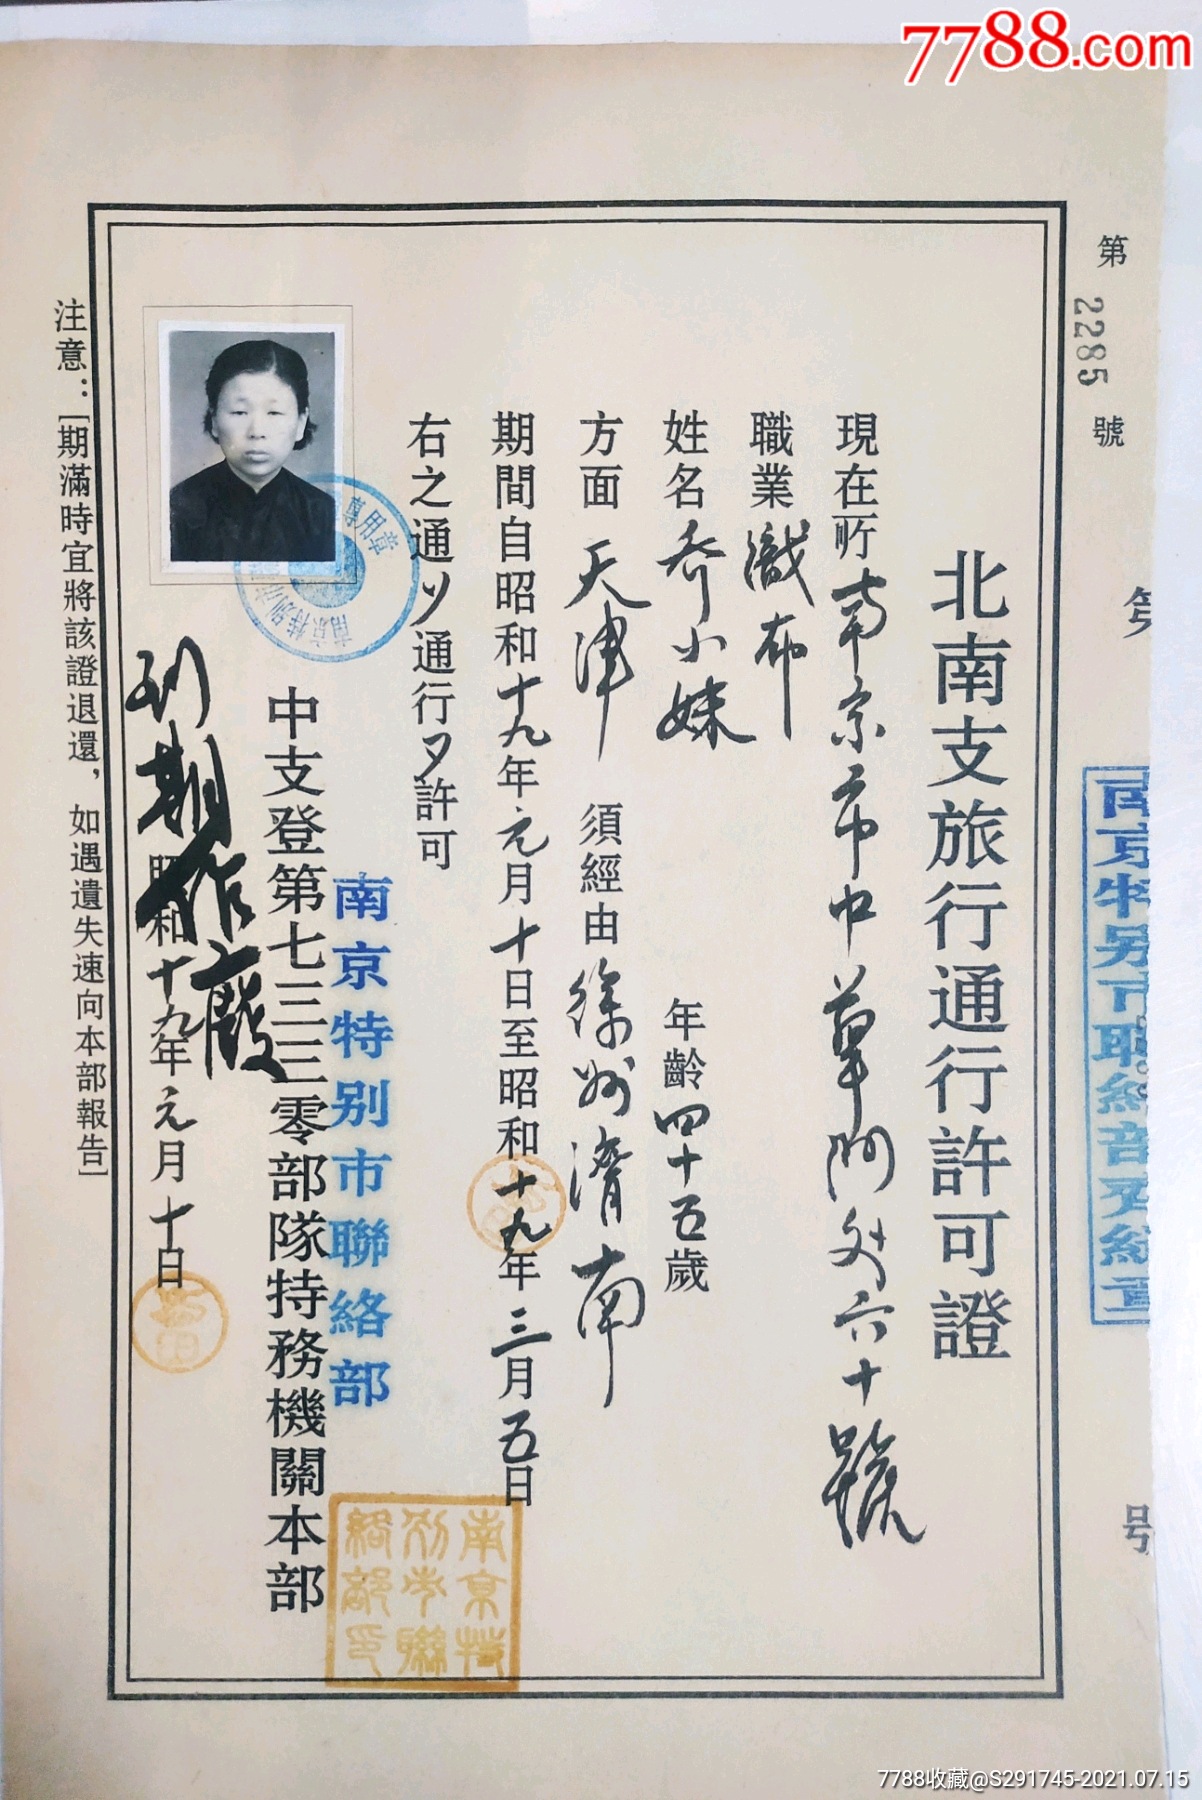 7788.com
第2285號
第 号
南京特别市聯絡部
北南支旅行通行許可證
現在所南京市中華門外六十號
職業織布
姓名乔小妹 年齡四十五歲
方面天津 須經由徐州濟南
期間自昭和十九年元月十日至昭和十九年三月五日
右之通リ通行ヲ許可
南京特别市聯絡部
中支登第七三三零部隊特務機關本部
昭和十九年元月十日
到期作廢
注意：[期滿時宜將該證退還，如遇遺失速向本部報告]
南京特别市聯絡部印
7788收藏@S291745-2021.07.15